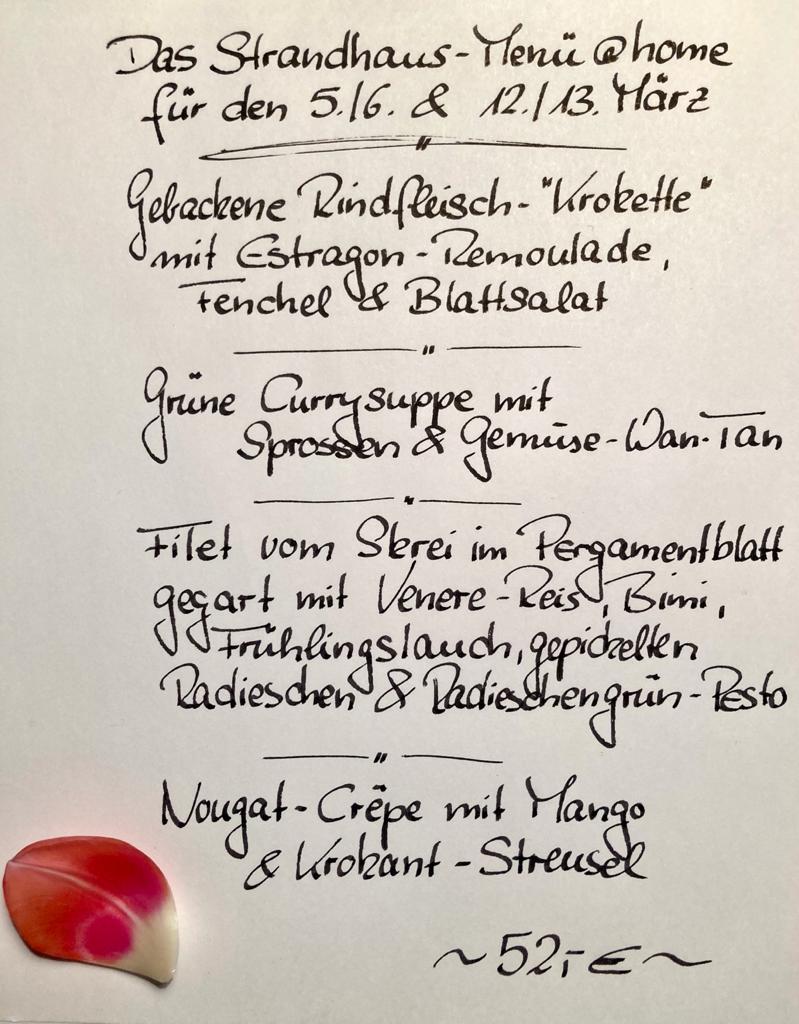 Das Strandhaus-Menü @home
für den 5./6. & 12./13. März
Gebackene Rindfleisch-"Krokette"
mit Estragon-Remoulade,
Fenchel & Blattsalat
Grüne Currysuppe mit
Sprossen & Gemüse-Wan-Tan
Filet vom Skrei im Pergamentblatt
gegart mit Venere-Reis, Bimi,
Frühlingslauch, gepickelten
Radieschen & Radieschengrün-Pesto
Nougat-Crêpe mit Mango
& Krokant-Streusel
~52,-€~